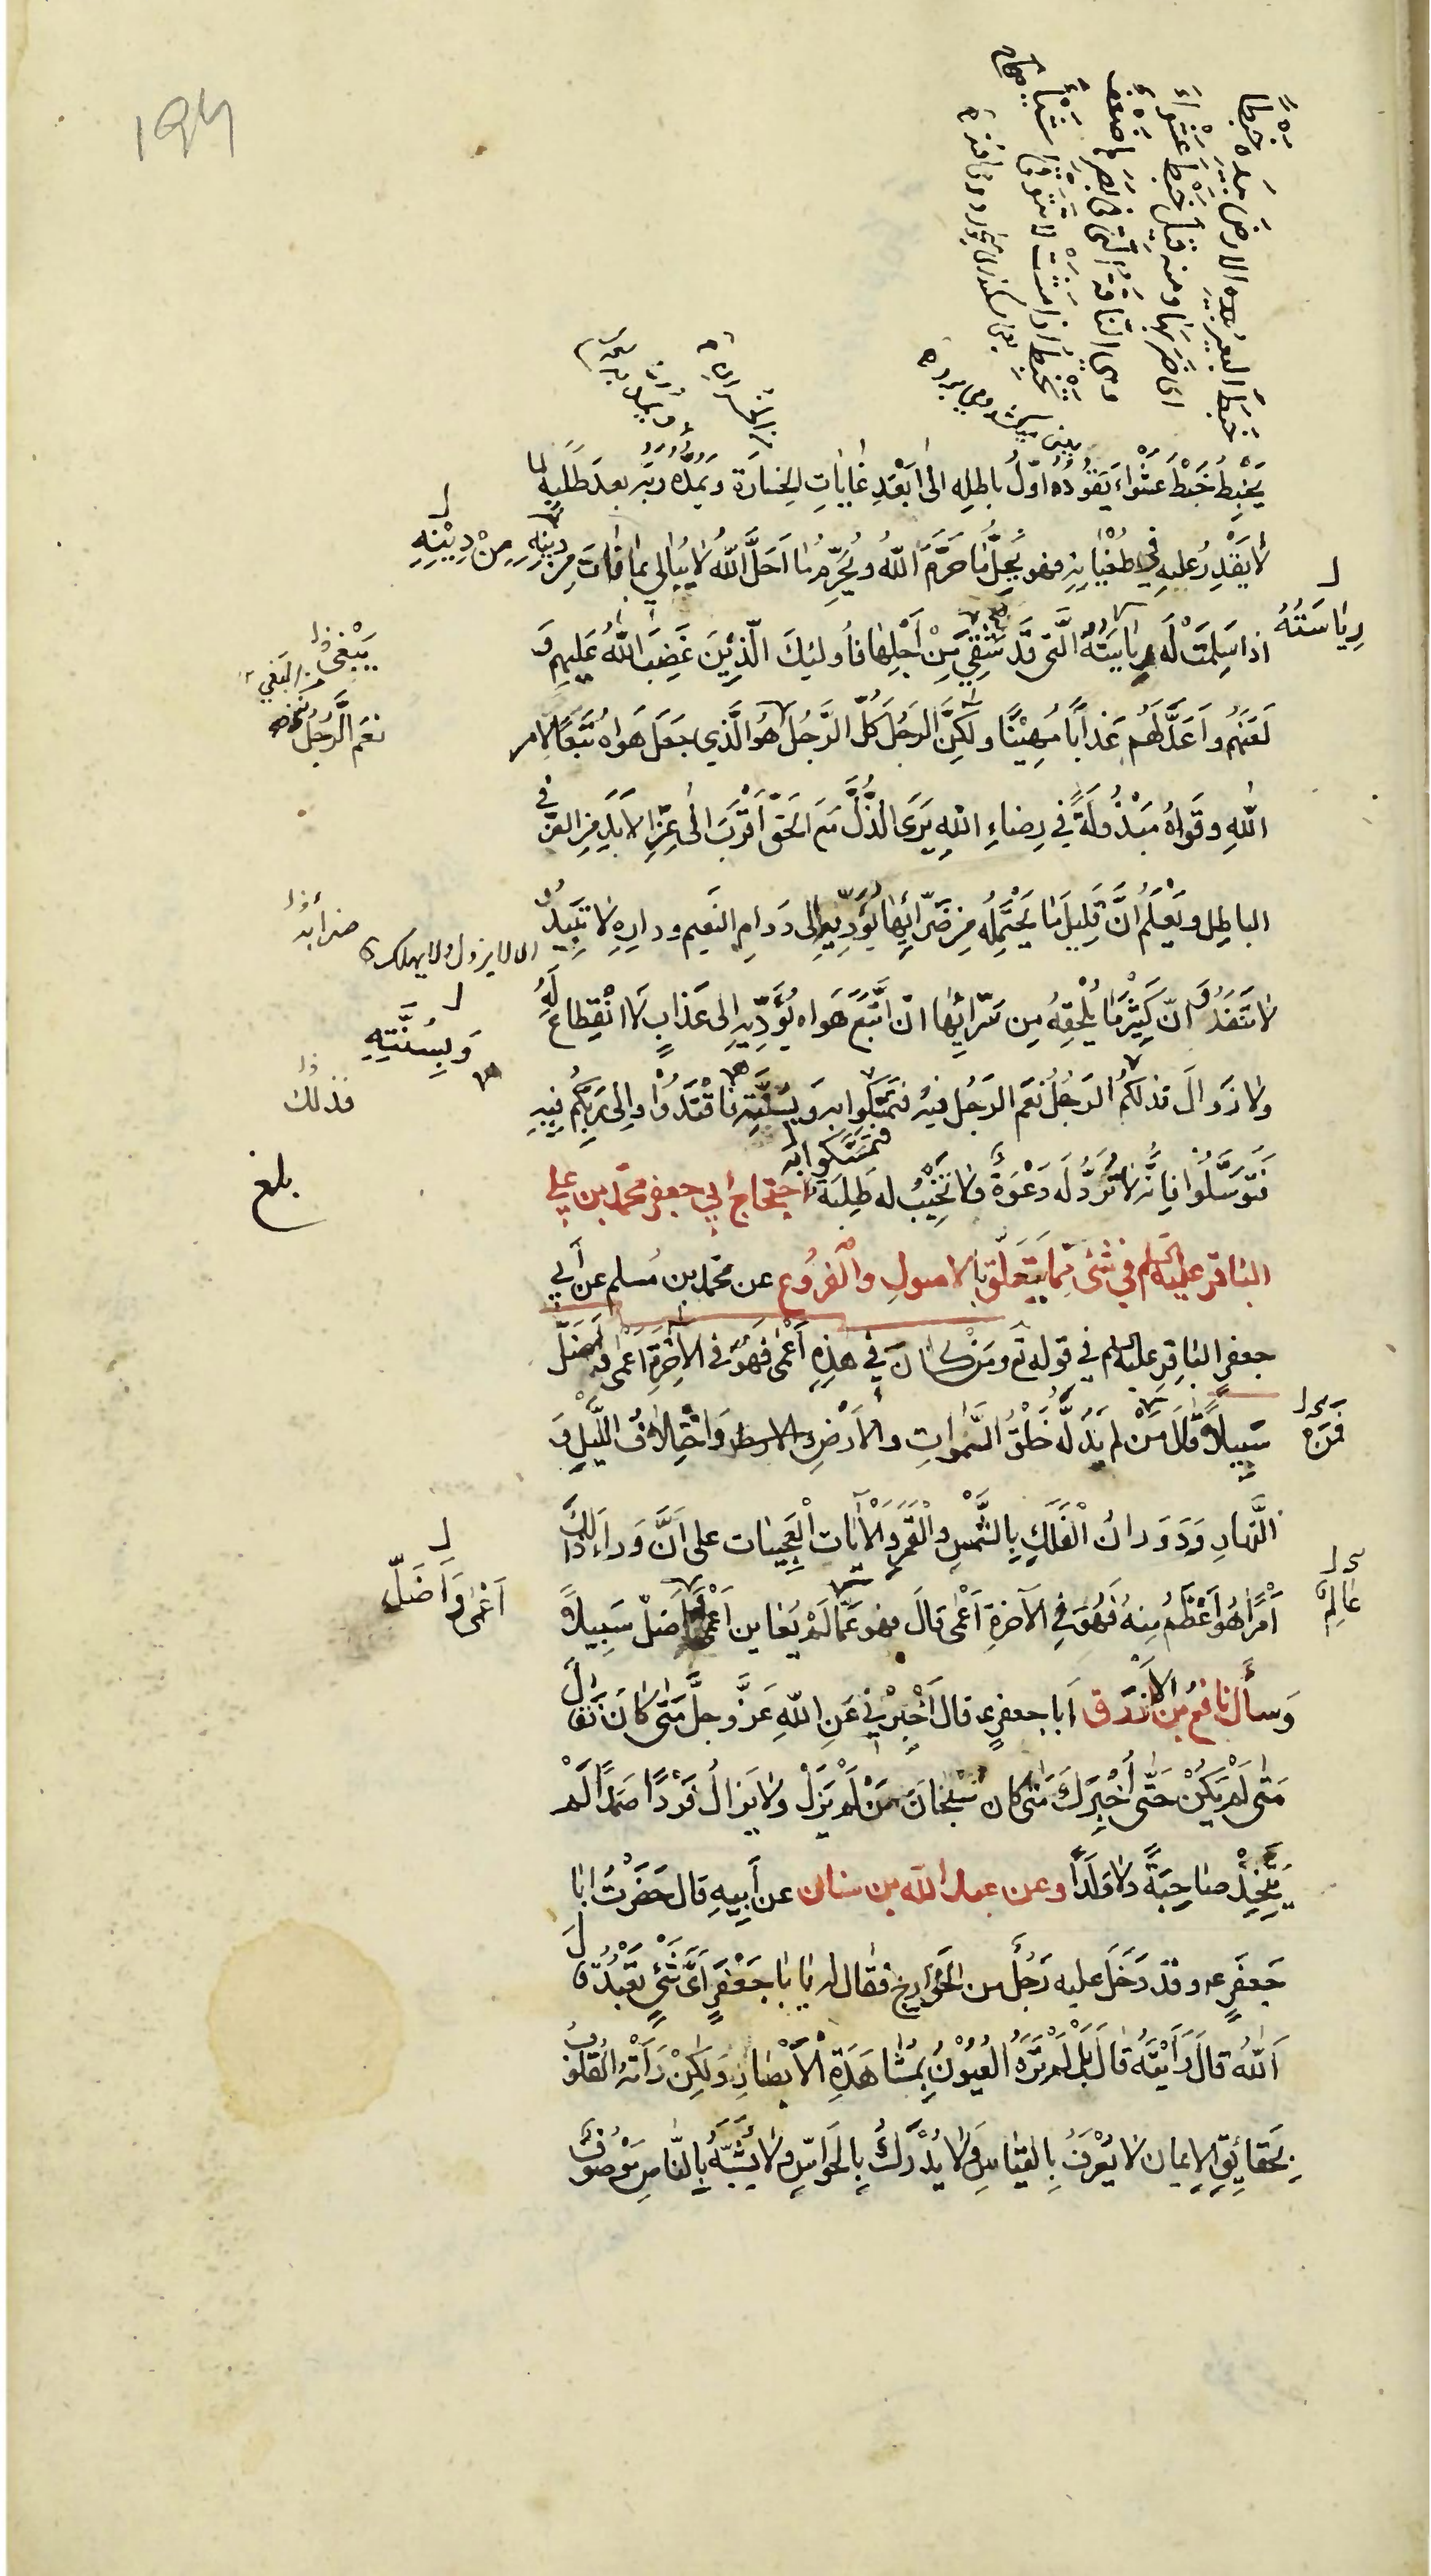 194
خَبَطَ البعيرُ بيده الارضَ خبطا
اى ضربها ومنه قيل خبط عَشْوَاءَ
وهى النّاقة الّتى فى بصرها ضعف
تَخبِط اذا مشت لا تتوقّى شيئا صحاح
يَخْبِطُ خَبْطَ عَشْوَاءَ يَقُوْدُهُ اوّلُ باطلِهِ الىٰ اَبْعَدِ غاياتِ الخسارَةِ ويَمُدُّهُ ربّه بعدَ طَلَبِهِ لما
لا يَقْدِرُ عليهِ في طُغْيانِهِ فهو يُحِلُّ مَا حَرَّمَ اللّٰهُ ويُحَرِّمُ مَا اَحَلَّ اللّٰهُ لا يُبالي بما فاتَ مِن دِينِهِ
مِنْ دِيْنِهِ
رِياسَتُهُ
اذا سَلِمَتْ لَهُ رياسته الّتى قَد شَقِيَ مِنْ اَجْلِها فأولئِكَ الّذِيْنَ غَضِبَ اللّٰهُ عَلَيهِم وَ
لَعَنَهُم واَعَدَّ لَهُم عَذابًا مُهِيْنًا ولٰكِنَّ الرجُلَ كلَّ الرَّجُلِ هُوَ الَّذي جَعَلَ هَواهُ تَبَعًا لِامر
نِعَم الرَّجُل
اللّٰهِ وقُواهُ مَبْذُولَةً في رِضاءِ اللهِ يَرَى الذُّلَّ مَعَ الحَقّ اَقْرَبَ الىٰ عِزِّ الاَبَدِ مِن العِزّ فى
الباطِلِ ويَعْلَمُ انَّ قَلِيلَ مَا يَحْتَمِلُهُ مِن ضَرّائِها يُؤدّيهِ الى دَوامِ النَعيم في دارٍ لا تَبِيدُ و
ضرائه
اى لا يزول ولا يهلك
لا تَنْفَدُ وَ انّ كَثِيْرَ مَا يَلْحَقُهُ مِن سَرّائِها ان اتَّبَعَ هَواه يُؤَدِّيهِ الى عَذابٍ لَا انْقِطاعَ لَهُ
وَبِسُنَّتِهِ
ولا زوالَ فذلكم الرَجُلُ نِعَم الرجُل فبهِ فتمَسَّكوا وبِسُنَّتِهِ فاقْتَدُوْا والى رَبِّكُم فبِهِ
فذلك
فتمسّكوا به
فَتَوَسَّلُوا فإنّه لا تُرَدُّ لَه دَعْوَةٌ ولا تُخَيَّبُ له طَلِبَةٌ احتجاج ابي جعفر محمّد بن علي
بلغ
الباقر عليه السلم في شئ ممّا يتعلّق بالاصولِ والفُروُع عن محمّد بن مُسلم عن أَبي
جعفرٍ الباقِرِ عليه السلم في قوله تع ومَنْ كانَ في هٰذِهِ اَعْمىٰ فَهُوَ في الاٰخِرَةِ اَعْمىٰ واَضَلُّ
سَبِيلاً قالَ مَنْ لم يَدُلَّهُ خَلْقُ السَّمواتِ والاَرْضِ وَاخْتِلافُ اللَّيْلِ وَ
فمن
النَّهارِ وَدَوَرانُ الْفَلَكِ بِالشَّمْسِ والْقَمَرِ وَالْاٰيات الْعَجِيبات على اَنَّ وَراءَ ذٰلِكَ
اَمْرًا هُوَ اَعْظَمُ مِنهُ فَهُوَ في الآخرةِ اَعْمىٰ قالَ فهو عَمّا لَمْ يُعايِن اَعْمىٰ واَضلّ سَبِيلاً
اَعْمىٰ وَاَضَلّ
وَسأل نافع بن الازرَق اَبا جعفرٍ ع قالَ اَخْبِرْني عَنِ اللّٰهِ عَزَّ وجلَّ مَتىٰ كانَ فَقالَ
مَتىٰ لَمْ يَكُنْ حَتّى اُخْبِرَكَ مَتىٰ كان سُبْحانَ مَنْ لَمْ يَزَلْ ولا يَزالُ فَرْدًا صَمَدًا لَمْ
يَتَّخِذْ صاحِبَةً ولا وَلَدًا وعن عبد الله بن سنان عن اَبِيهِ قال حَضَرْتُ ابا
جَعفَرٍ ع وقد دَخَلَ عليه رَجُلٌ من الخَوارِج فقال له يا ابا جَعْفَرٍ اَىَّ شَئٍ تَعْبُدُ قالَ
اَللّٰهَ قالَ رَأَيْتَهُ قالَ بَلىٰ لَمْ تَرَهُ العُيُوْنُ بِمُشاهَدَةِ الْاَبْصارِ وَلٰكِنْ رَأَتْهُ القُلُوبُ
بِحَقائِقِ الاِيمان لا يُعْرَفُ بِالقياسِ ولا يُدْرَكُ بِالحَواسِّ ولا يُشَبَّهُ بِالنّاسِ مَوْصُوفٌ